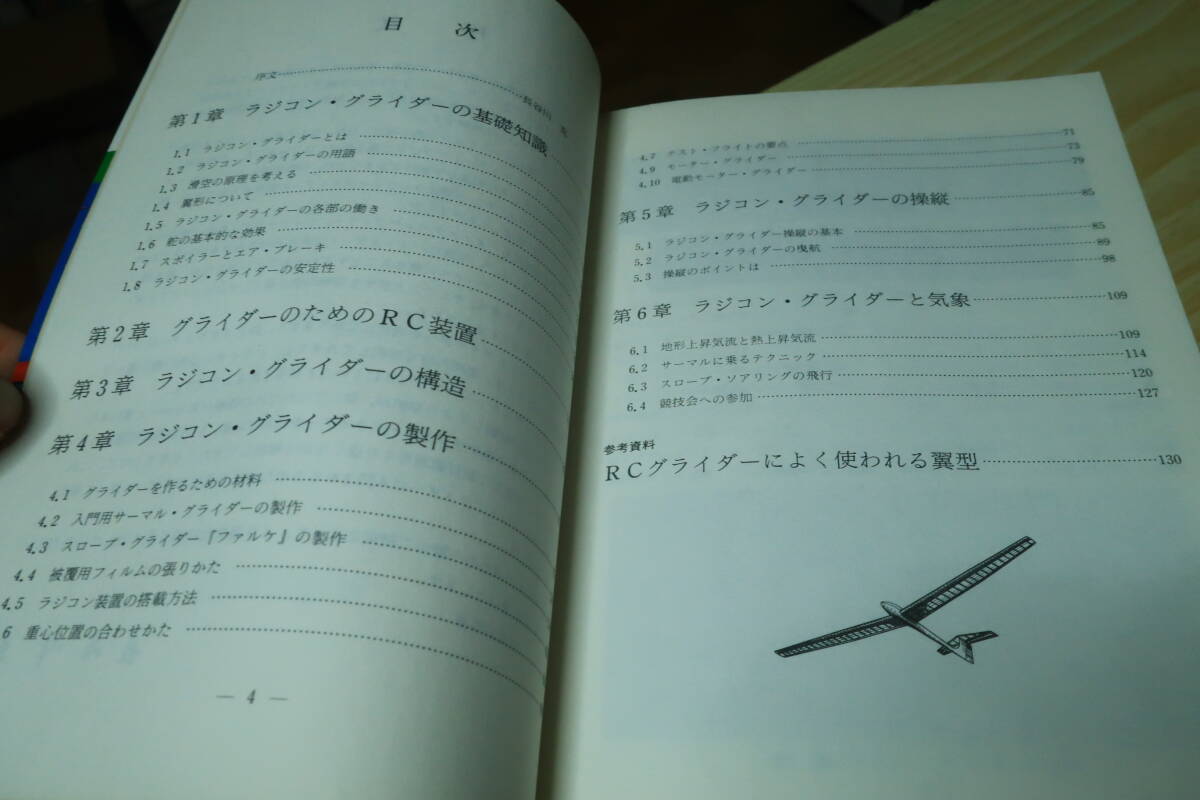 目次
序文
第1章 ラジコン・グライダーの基礎知識
1.1 ラジコン・グライダーとは
1.2 ラジコン・グライダーの用語
1.3 滑空の原理を考える
1.4 翼形について
1.5 ラジコン・グライダーの各部の働き
1.6 舵の基本的な効果
1.7 スポイラーとエア・ブレーキ
1.8 ラジコン・グライダーの安定性
第2章 グライダーのためのRC装置
第3章 ラジコン・グライダーの構造
第4章 ラジコン・グライダーの製作
4.1 グライダーを作るための材料
4.2 入門用サーマル・グライダーの製作
4.3 スロープ・グライダー『ファルケ』の製作
4.4 被覆用フィルムの張りかた
4.5 ラジコン装置の搭載方法
6 重心位置の合わせかた
— 4 —
4.7 テスト・フライトの要点 71
4.9 モーター・グライダー 73
4.10 電動モーター・グライダー 79
第5章 ラジコン・グライダーの操縦 85
5.1 ラジコン・グライダー操縦の基本 85
5.2 ラジコン・グライダーの曳航 89
5.3 操縦のポイントは 98
第6章 ラジコン・グライダーと気象 109
6.1 地形上昇気流と熱上昇気流 109
6.2 サーマルに乗るテクニック 114
6.3 スロープ・ソアリングの飛行 120
6.4 競技会への参加 127
参考資料
RCグライダーによく使われる翼型 130